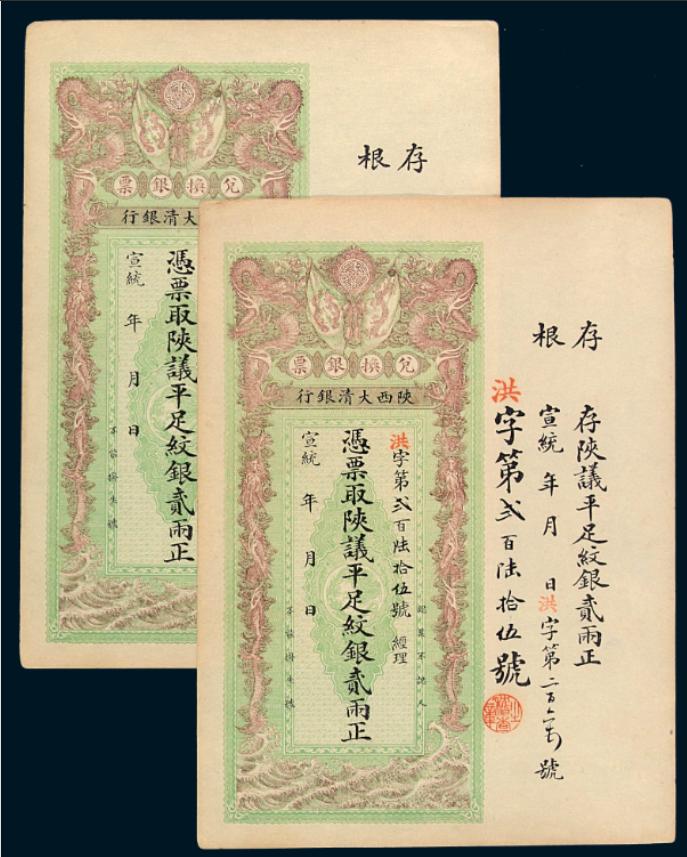 存根
兌換銀票
大清銀行
憑票取陝議平足紋銀貳兩正
宣統 年 月 日
不能掛失票
存根
存陝議平足紋銀貳兩正
宣統 年 月 日 洪字第二百六 號
洪字第弍百陸拾伍號
兌換銀票
陝西大清銀行
洪字第弍百陸拾伍號 經理
認票不認人
憑票取陝議平足紋銀貳兩正
宣統 年 月 日
不能掛失票